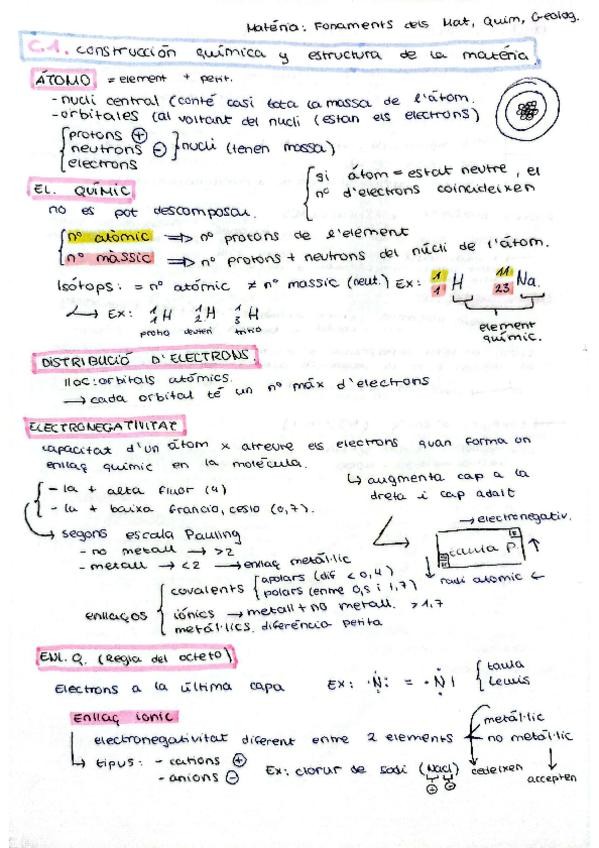 Matéria: Fonaments dels Mat, Quím, Geolog.
C.1. construcción química y estructura de la matéria
ÁTOMO = element + petit.
- nucli central (conté casi tota la massa de l'átom.
- orbitales (al voltant del nucli (estan els electrons)
protons +
neutrons - } nucli (tenen massa)
electrons
si átom = estat neutre, el
nº d'electrons coincideixen
EL. QUÍMIC
no es pot descomposar.
nº atòmic => nº protons de l'element
nº màssic => nº protons + neutrons del núcli de l'átom.
Isótops: = nº atómic ≠ nº massic (neut.) Ex: 1 1 H 11 23 Na.
element químic.
Ex: 1 1 H 1 2 H 1 3 H
protio deuteri tritio
DISTRIBUCIÓ D'ELECTRONS.
lloc: orbitals atómics.
→ cada orbital té un nº máx d'electrons
ELECTRONEGATIVITAT
capacitat d'un átom x atreure els electrons quan forma un
enllaç quimic en la molécula.
↳ augmenta cap a la
dreta i cap adalt
- la + alta fluor (4)
- la + baixa francio, cesio (0,7).
→ segons escala Pauling
- no metall → >2
- metall → <2 → enllaç metál·lic
→ electronegativ.
taula P.
radi atomic ←
enllaços
covalents { apolars (dif < 0,4)
polars (entre 0,5 i 1,7)
iónics → metall + no metall. > 1,7
metál·lics. diferéncia petita
ENL.Q. (Regla del octeto)
Electrons a la última capa Ex: ·N: = ·N| { taula
Lewis
Enllaç ionic
electronegativitat diferent entre 2 elements
metál·lic
no metál·lic
cedeixen
accepten
↳ tipus: - cations +
- anions -
Ex: clorur de sodi (NaCl)
+ -